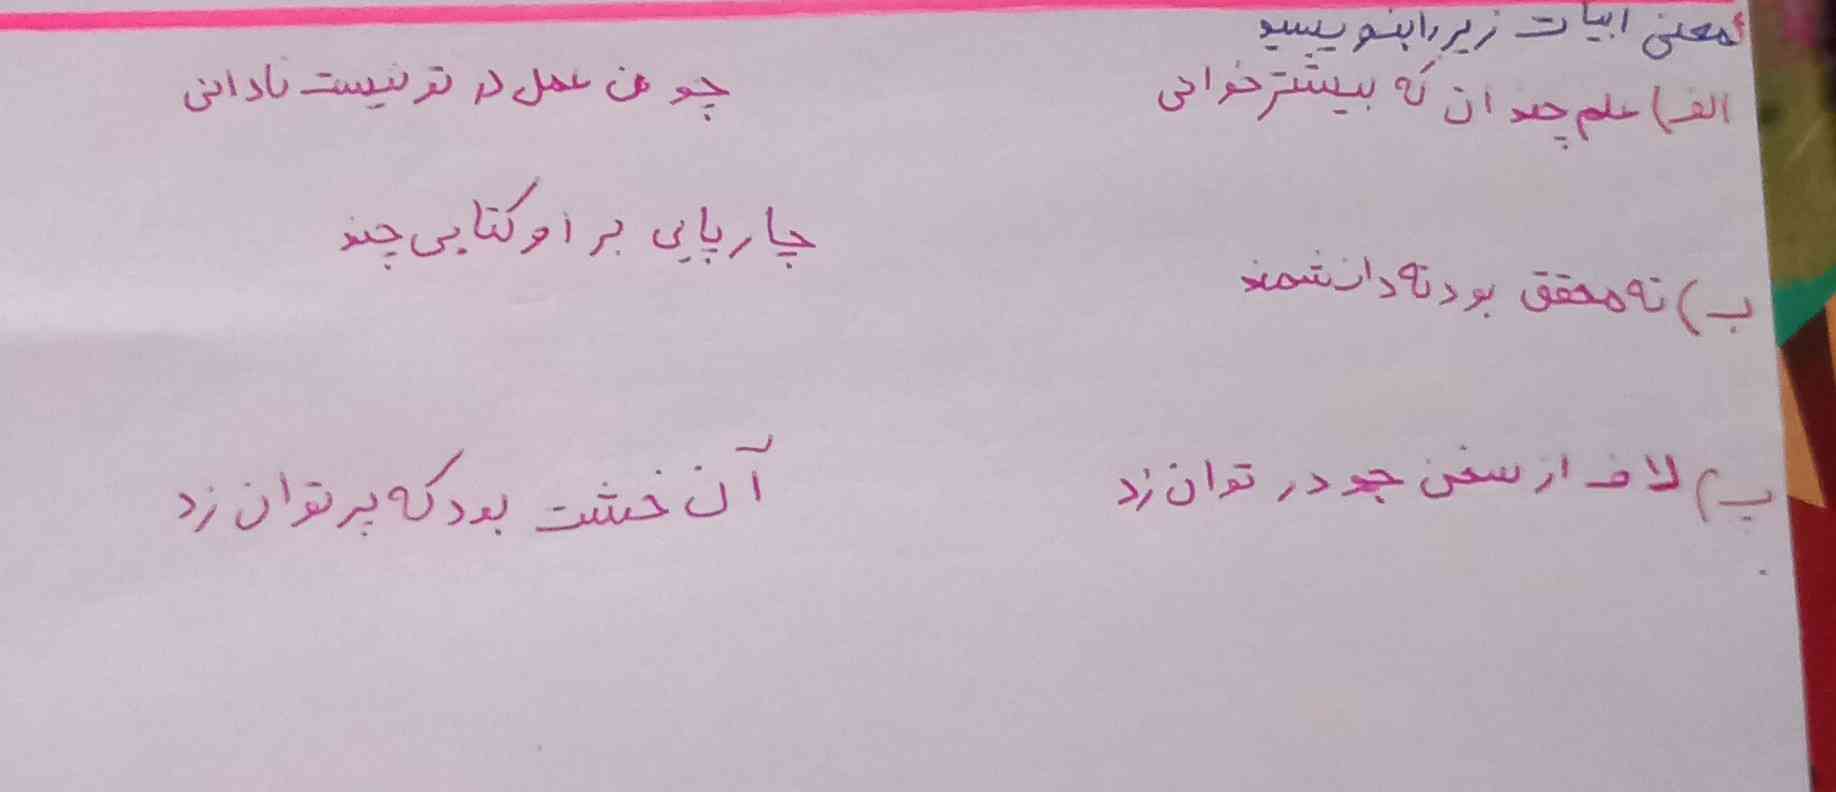 معنی ابیات زیر را بنویسید
الف) علم چندان که بیشتر خوانی چو عمل در تو نیست نادانی
ب) نه محقق بود نه دانشمند چارپایی بر او کتابی چند
پ) لاف از سخن چو در توان زد آن خشت بود که پر توان زد